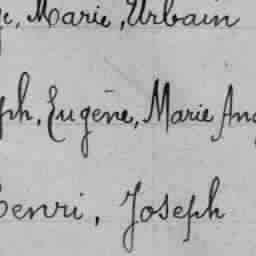 , Marie, Urbain
ph, Eugène, Marie Ang
Henri, Joseph